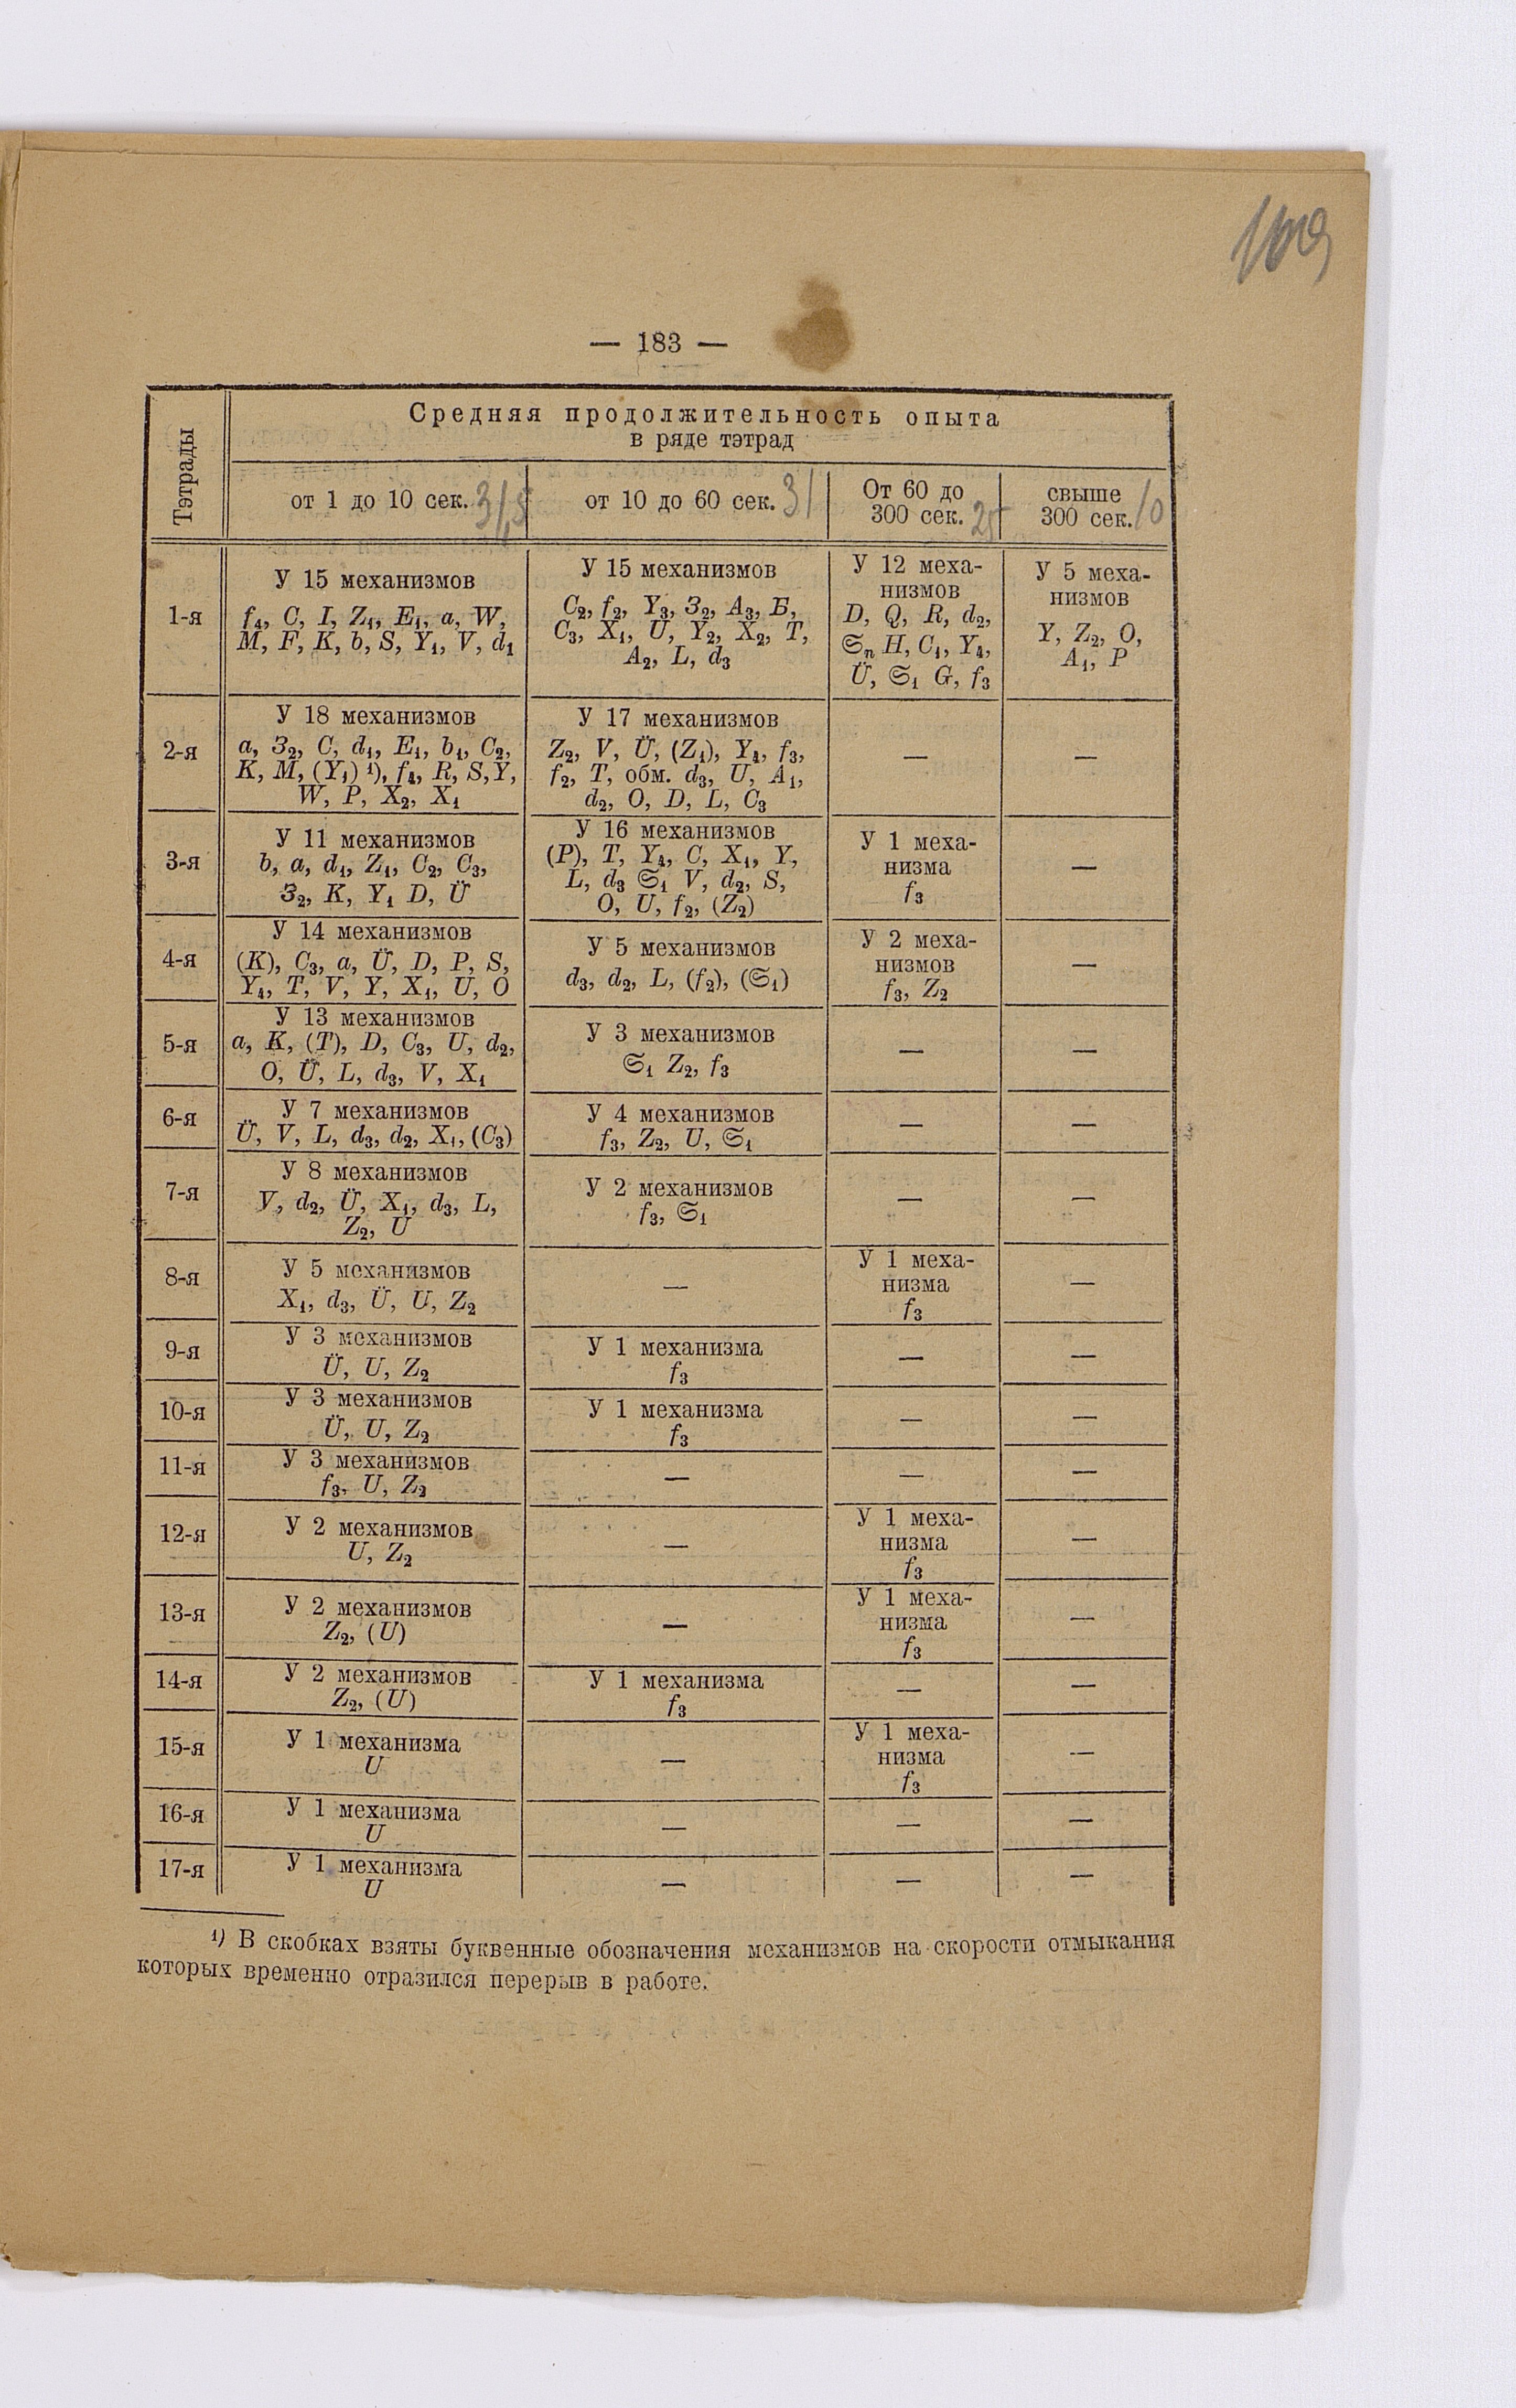 169
— 183 —
Тэтрады
Средняя продолжительность опыта
в ряде тэтрад
от 1 до 10 сек. 31,5
от 10 до 60 сек. 31
От 60 до
300 сек. 25
свыше
300 сек. 10
1-я
У 15 механизмов
f₄, C, I, Z₁, E₁, a, W,
M, F, K, b, S, Y₁, V, d₁
У 15 механизмов
C₂, f₂, Y₃, З₂, A₃, Б,
C₃, X₁, U, Y₂, X₂, T,
A₂, L, d₃
У 12 меха-
низмов
D, Q, R, d₂,
𝔖ₙ H, C₁, Y₄,
Ü, 𝔖₁ G, f₃
У 5 меха-
низмов
Y, Z₂, O,
A₁, P
2-я
У 18 механизмов
a, З₂, C, d₁, E₁, b₁, C₂,
K, M, (Y₁) ¹), f₄, R, S, Y,
W, P, X₂, X₁
У 17 механизмов
Z₂, V, Ü, (Z₁), Y₄, f₃,
f₂, T, обм. d₃, U, A₁,
d₂, O, D, L, C₃
—
—
3-я
У 11 механизмов
b, a, d₁, Z₁, C₂, C₃,
З₂, K, Y₁ D, Ü
У 16 механизмов
(P), T, Y₄, C, X₁, Y,
L, d₃ 𝔖₁ V, d₂, S,
O, U, f₂, (Z₂)
У 1 меха-
низма
f₃
—
4-я
У 14 механизмов
(K), C₃, a, Ü, D, P, S,
Y₄, T, V, Y, X₁, U, O
У 5 механизмов
d₃, d₂, L, (f₂), (𝔖₁)
У 2 меха-
низмов
f₃, Z₂
—
5-я
У 13 механизмов
a, K, (T), D, C₃, U, d₂,
O, Ü, L, d₃, V, X₁
У 3 механизмов
𝔖₁ Z₂, f₃
—
—
6-я
У 7 механизмов
Ü, V, L, d₃, d₂, X₁, (C₃)
У 4 механизмов
f₃, Z₂, U, 𝔖₁
—
—
7-я
У 8 механизмов
V, d₂, Ü, X₁, d₃, L,
Z₂, U
У 2 механизмов
f₃, 𝔖₁
—
—
8-я
У 5 механизмов
X₁, d₃, Ü, U, Z₂
—
У 1 меха-
низма
f₃
—
9-я
У 3 механизмов
Ü, U, Z₂
У 1 механизма
f₃
—
—
10-я
У 3 механизмов
Ü, U, Z₂
У 1 механизма
f₃
—
—
11-я
У 3 механизмов
f₃, U, Z₂
—
—
—
12-я
У 2 механизмов
U, Z₂
—
У 1 меха-
низма
f₃
—
13-я
У 2 механизмов
Z₂, (U)
—
У 1 меха-
низма
f₃
—
14-я
У 2 механизмов
Z₂, (U)
У 1 механизма
f₃
—
—
15-я
У 1 механизма
U
—
У 1 меха-
низма
f₃
—
16-я
У 1 механизма
U
—
—
—
17-я
У 1 механизма
U
—
—
—
¹) В скобках взяты буквенные обозначения механизмов на скорости отмыкания
которых временно отразился перерыв в работе.